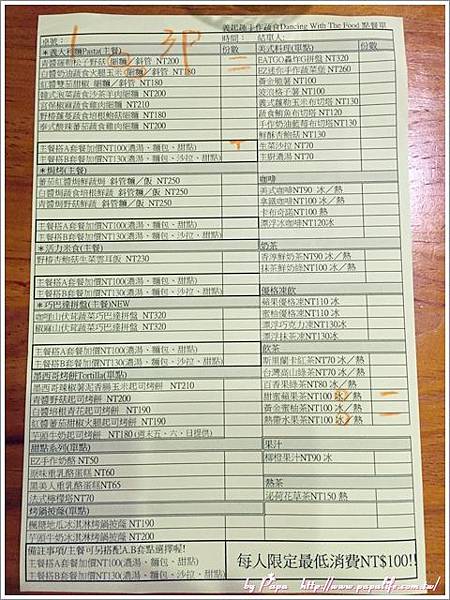 義起趣手作蔬食Dancing With The Food 點餐單
桌號：
時間：
結單人:
*義大利麵Pasta(主餐)
份數
青醬蘿勒松子野菇 細麵／斜管 NT200
白醬奶油蔬食火腿玉米 細麵／斜管 NT180
紅醬雙茄甜椒 細麵／斜管 NT180
韓式泡菜蔬食沙茶羊肉細麵 NT200
宮保椒麻蔬食雞肉細麵 NT210
野椿蘿蔓蔬食培根鮑菇細麵 NT180
泰式酸辣蕃茄蔬食雞肉細麵 NT200
主餐搭A套餐加價NT100(濃湯、麵包、甜點)
主餐搭B套餐加價NT130(濃湯、麵包、沙拉、甜點)
*焗烤(主餐)
蕃茄紅醬焗鮮蔬焗 斜管麵／飯 NT250
白醬蔬食焗培根鮮蔬 斜管麵／飯 NT250
青醬焗野菇鮮蔬 斜管麵／飯 NT250
主餐搭A套餐加價NT100(濃湯、麵包、甜點)
主餐搭B套餐加價NT130(濃湯、麵包、沙拉、甜點)
*活力米食(主餐)
野椿杏鮑菇生菜雲耳飯 NT230
主餐搭A套餐加價NT100(濃湯、麵包、甜點)
主餐搭B套餐加價NT130(濃湯、麵包、沙拉、甜點)
*巧巴達拼盤(主餐)NEW
咖哩山伏茸蔬菜巧巴達拼盤 NT320
椒麻山伏茸蔬菜巧巴達拼盤 NT320
主餐搭A套餐加價NT100(濃湯、麵包、甜點)
主餐搭B套餐加價NT130(濃湯、麵包、沙拉、甜點)
墨西哥烤餅Tortilla(單點)
墨西哥辣椒薯泥香腸玉米起司烤餅 NT210
青醬野菇起司烤餅 NT200
白醬培根青花起司烤餅 NT190
紅醬蕃茄甜椒火腿起司烤餅 NT190
芋頭牛奶起司烤餅 NT180 (週末五、六、日提供)
甜點系列(單點)
EZ手作奶酪 NT50
原味重乳酪蛋糕 NT60
黑美人重乳酪蛋糕NT65
法式檸檬塔NT70
烤鍋披薩(單點)
楓糖地瓜冰淇淋烤鍋披薩 NT190
芋頭牛奶冰淇淋烤鍋披薩 NT200
備註事項/主餐可另搭配A.B套點選擇喔!
主餐搭A套餐加價NT100(濃湯、麵包、甜點)
主餐搭B套餐加價NT130(濃湯、麵包、沙拉、甜點)
美式料理(單點)
份數
EATGO轟炸G拼盤 NT320
EZ迷你手作蔬菜堡 NT260
黃金脆薯 NT100
波浪格子薯 NT100
義式蘿勒玉米布切塔 NT130
蔬食鮪魚布切塔 NT130
手作奶油藍莓布切塔NT130
鮮酥杏鮑菇 NT130
生菜沙拉 NT70
主廚濃湯 NT70
咖啡
美式咖啡NT90 冰／熱
拿鐵咖啡NT100 冰／熱
卡布奇諾NT100 熱
漂浮冰咖啡NT120冰
奶茶
香淳鮮奶茶NT90 冰／熱
抹茶鮮奶綠NT100 冰／熱
優格凍飲
蘋果優格凍NT110 冰
蜜柚優格凍NT110 冰
漂浮巧克力凍NT130冰
漂浮抹茶凍NT130冰
飲茶
斯里蘭卡紅茶NT70 冰／熱
台灣高山綠茶NT70 冰／熱
百香果綠茶NT80 冰／熱
甜蜜蘋果茶NT100 冰／熱
黃金蜜柚茶NT100 冰／熱
熱帶水果茶NT100 冰／熱
果汁
柳橙原汁NT90 冰
熱茶
泌荷花草茶NT150 熱
每人限定最低消費NT$100!!
by Papa http://www.papalife.com.tw